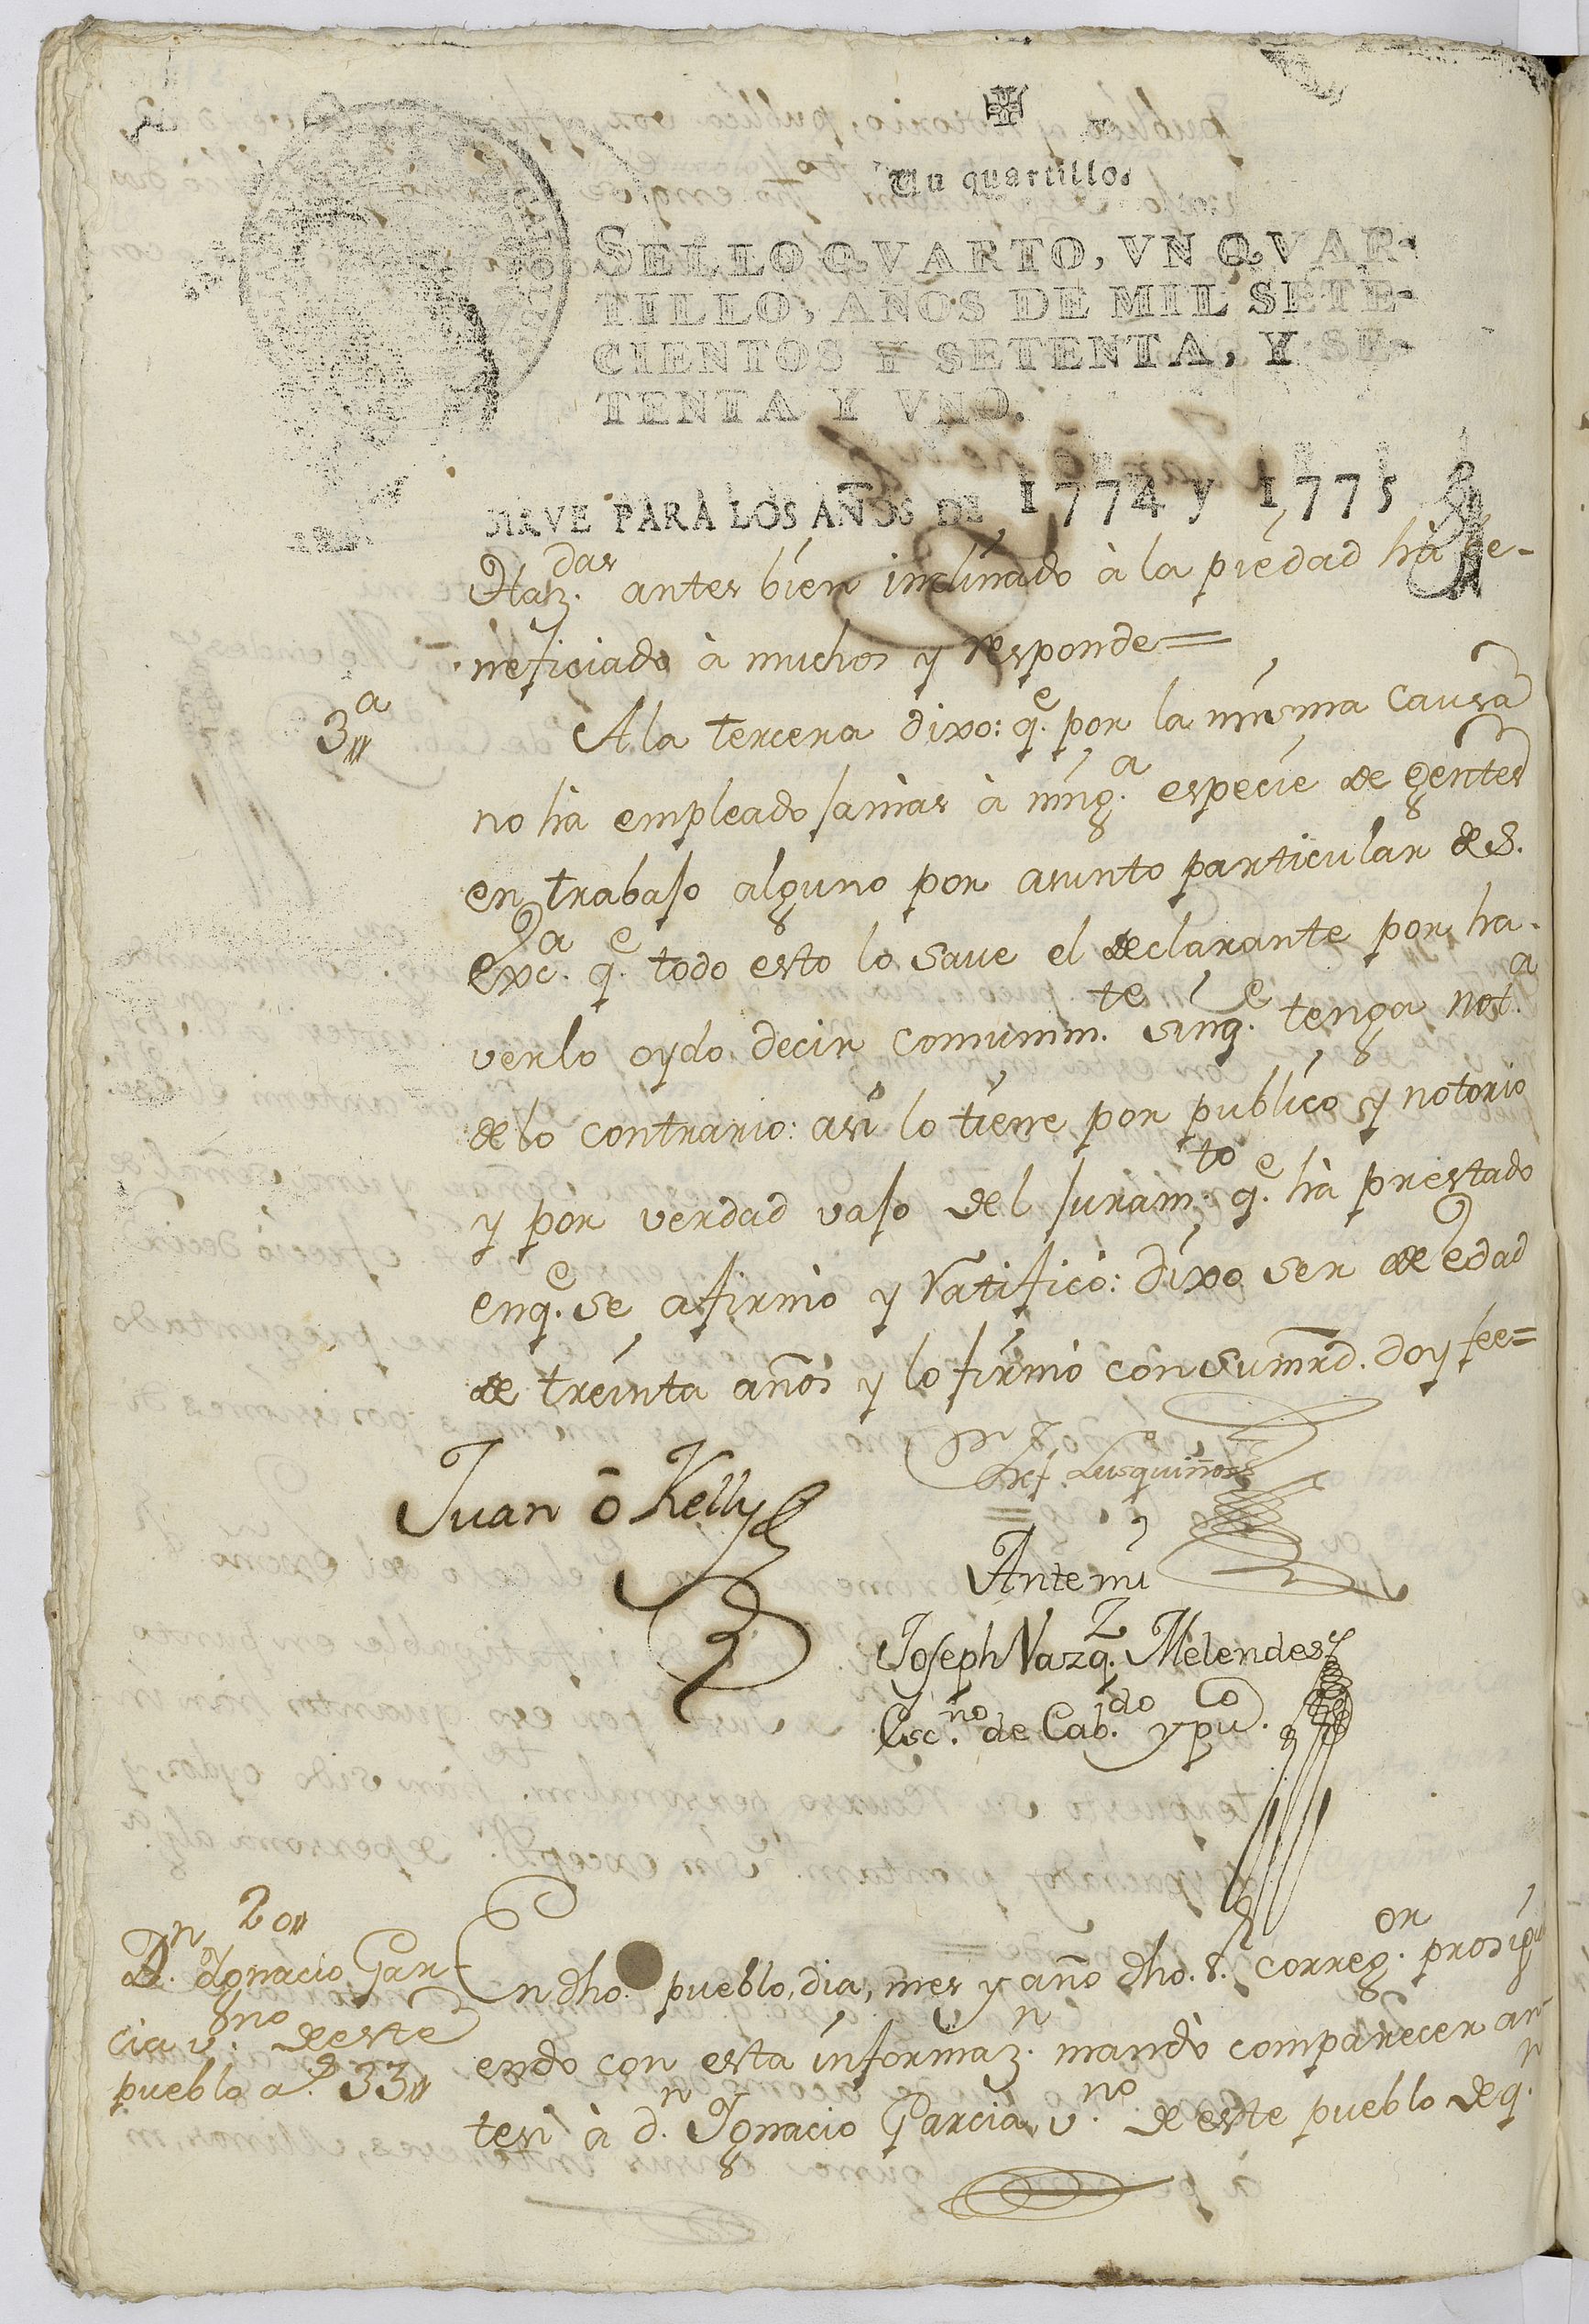 Un quartillo.
SELLO QVARTO, VN QVAR-
TILLO, AÑOS DE MIL SETE-
CIENTOS Y SETENTA, Y SE-
TENTA Y VNO.
SIRVE PARA LOS AÑOS DE 1774 y 1775
Haz.das antes bien inclinado à la piedad hà be-
neficiado à muchos y responde=
3a A la tercera dixo: q.e por la misma causa
no hà empleado jamas à ning.a especie de gentes
en trabajo alguno por asunto particular de S.
exc.a q.e todo esto lo save el declarante por ha-
verlo oydo decir comunm.te sinq.e tenga not.a
de lo contrario: asi lo tiene por publico y notorio
y por verdad vajo del juram.to q.e hà prestado
enq.e se afirmò y ratificò: dixo ser de edad
de treinta años y lo firmò con su mrd. doy fee=
Juan ō Kelly
Lusquiños
Antemi
Joseph Vazq.z Melendes
Esc.no de Cab.do y pu.co
20
D.n Ignacio Gar-
cia v.no de este
pueblo a.s 33
En dho. pueblo, dia, mes y año dho. S. correg.or prosigui
endo con esta informaz.n mandò comparecer an-
tesi à d.n Ignacio Garcia v.no de este pueblo de q.n